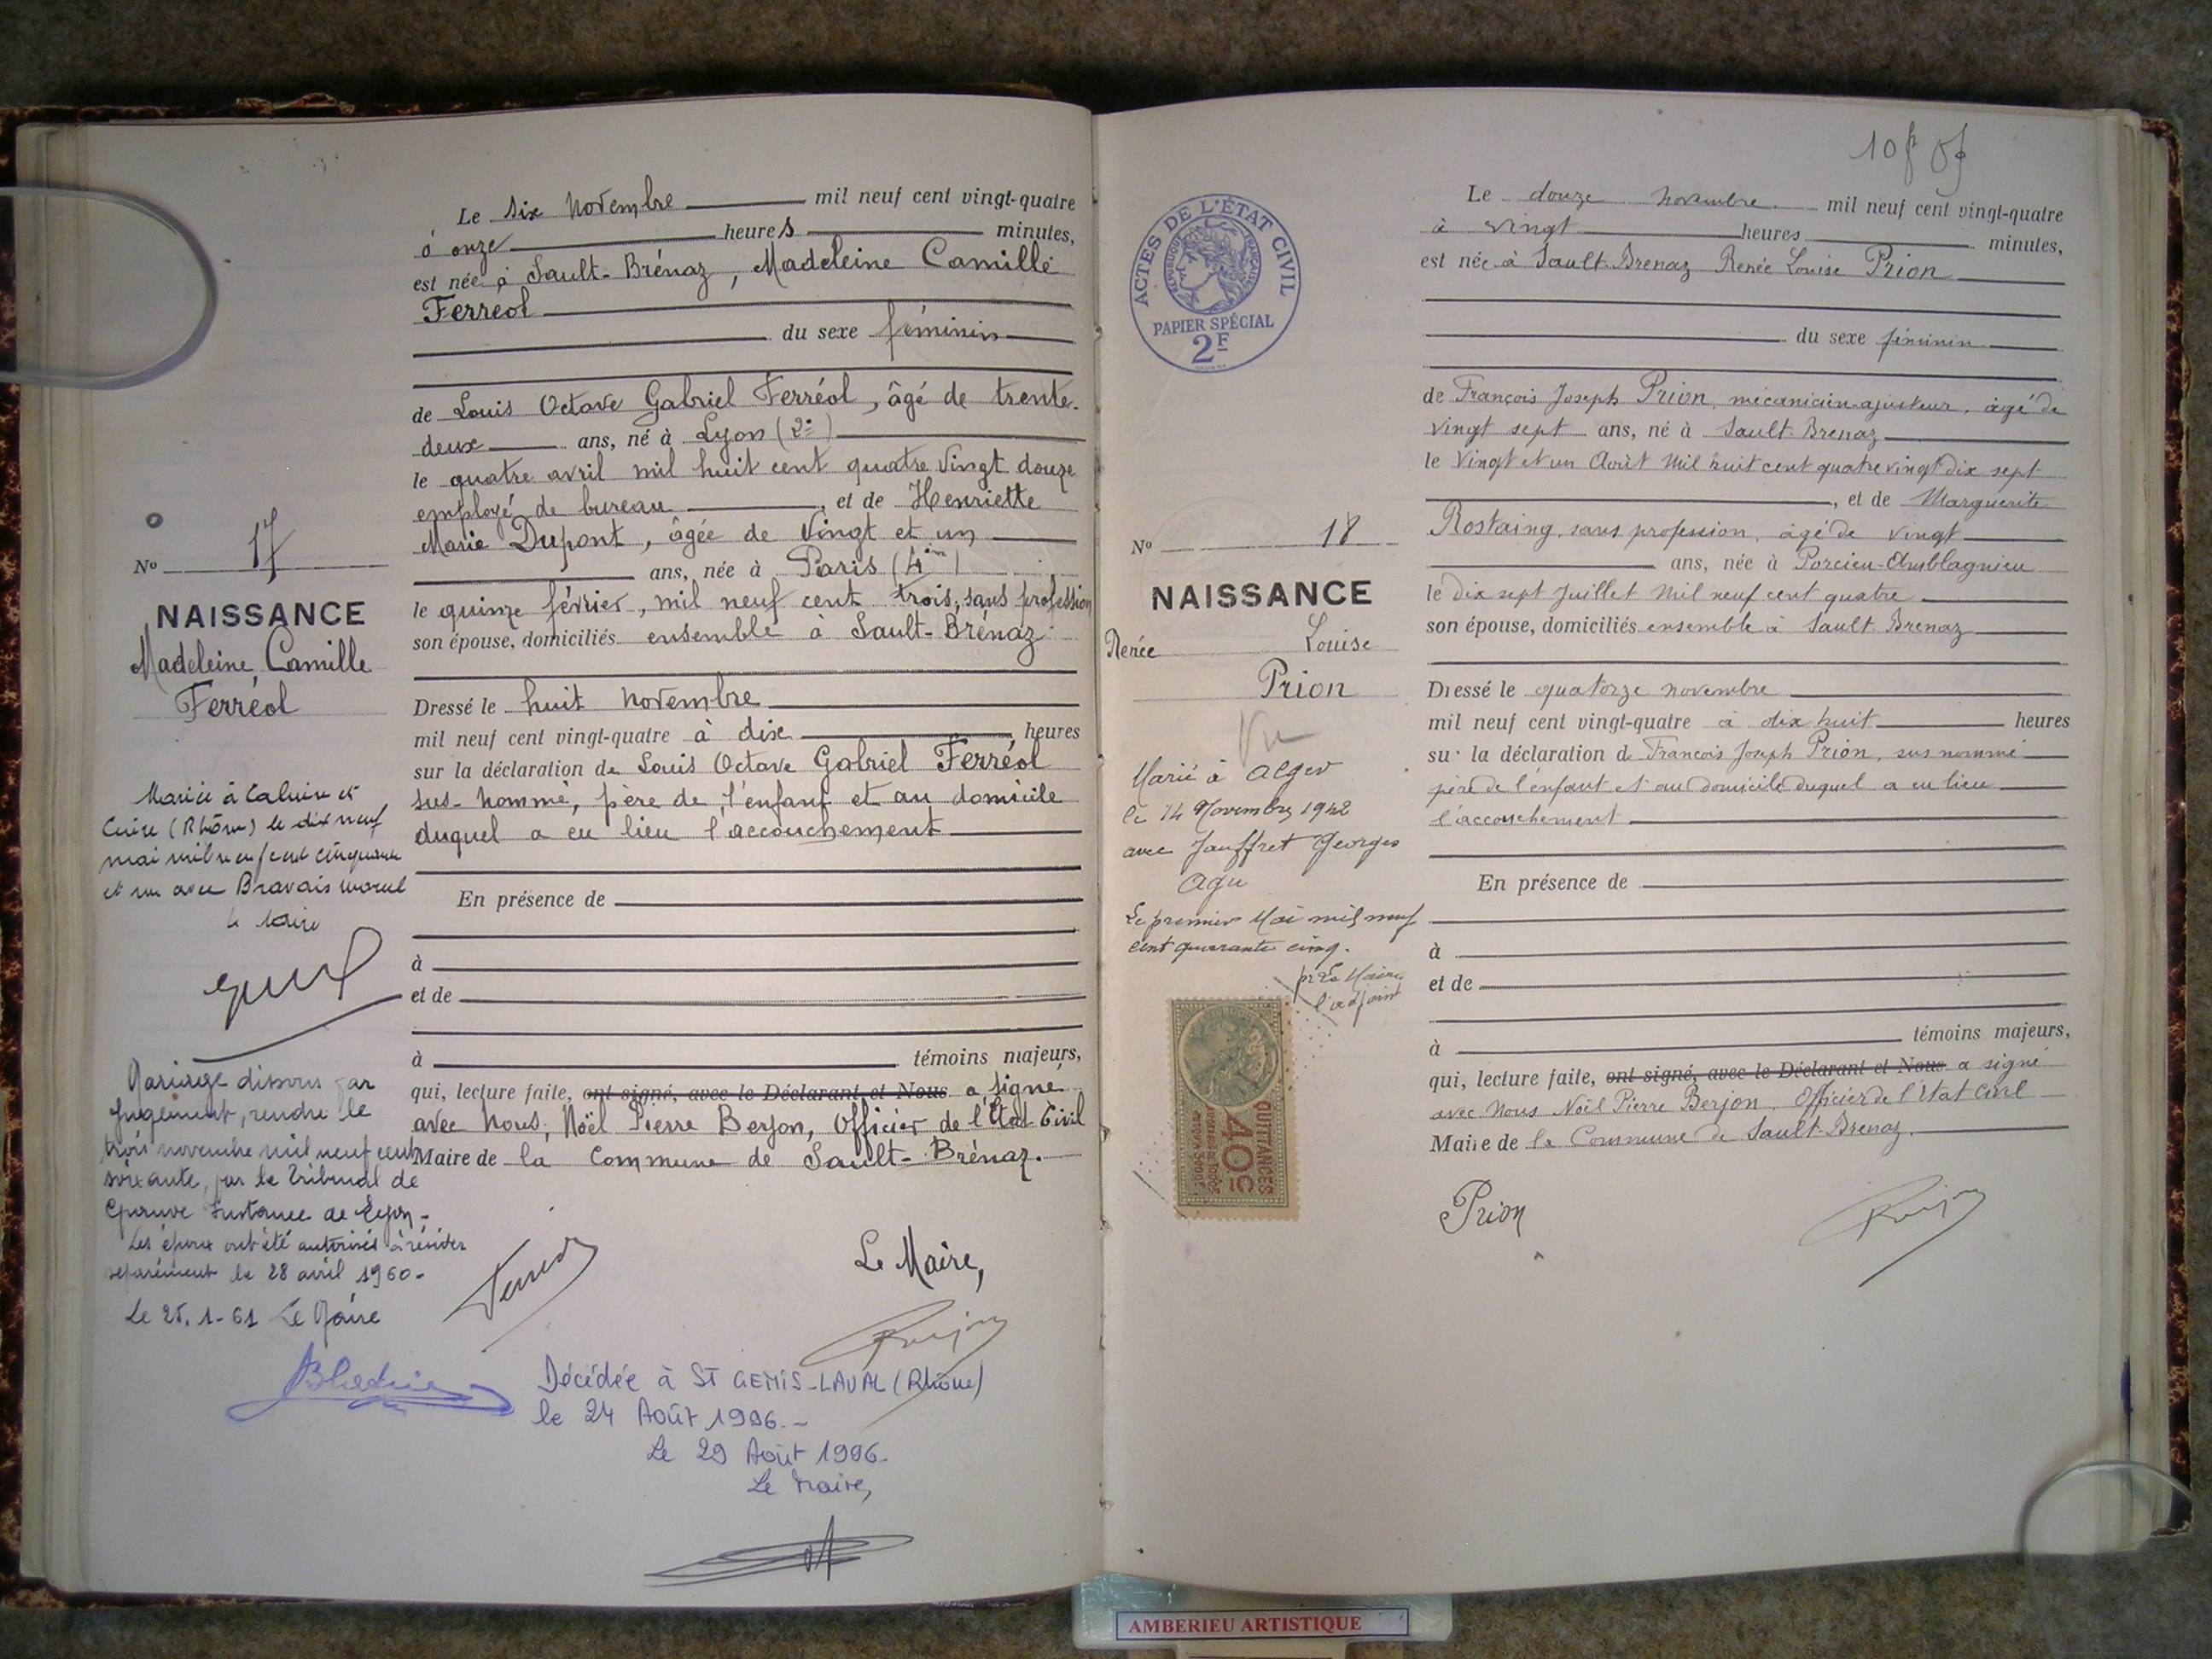 Le six Novembre mil neuf cent vingt-quatre
à onze heures minutes,
est née à Sault-Brénaz, Madeleine Camille
Ferréol
du sexe féminin
de Louis Octave Gabriel Ferréol, âgé de trente-
deux ans, né à Lyon (2e)
le quatre avril mil huit cent quatre vingt douze
employé de bureau, et de Henriette
Marie Dupont, âgée de vingt et un
ans, née à Paris (4em)
le quinze février, mil neuf cent trois, sans profession
son épouse, domiciliés ensemble à Sault-Brénaz
Dressé le huit novembre
mil neuf cent vingt-quatre à dix heures
sur la déclaration de Louis Octave Gabriel Ferréol
sus-nommé, père de l'enfant et au domicile
duquel a eu lieu l'accouchement
En présence de
à
et de
à témoins majeurs,
qui, lecture faite, ont signé, avec le Déclarant et Nous a signé
avec Nous, Noël Pierre Berjon, Officier de l'Etat Civil
Maire de la Commune de Sault-Brénaz.
Le Maire,
Décédée à ST GENIS-LAVAL (Rhône)
le 24 Août 1996.-
Le 29 Août 1996.
Le Maire,
No 17
NAISSANCE
Madeleine, Camille
Ferréol
Mariée à Caluire et
Cuire (Rhône) le dix neuf
mai mil neuf cent cinquante
et un avec Bravais
le Maire
Mariage dissous par
jugement, rendu le
trois novembre mil neuf cent
soixante, par le Tribunal de
Grande Instance de Lyon-
Les époux ont été autorisés à résider
séparément le 28 avril 1960-
Le 25.1-61 Le Maire
ACTES DE L'ÉTAT CIVIL
RÉPUBLIQUE FRANÇAISE
PAPIER SPÉCIAL
2F
No 18
NAISSANCE
Renée Louise
Prion
Vu
Marié à Alger
le 14 Novembre 1942
avec Jauffret Georges
Le premier Mai mil neuf
cent quarante cinq.
pr Le Maire,
l'adjoint
QUITTANCES
40c
Le douze novembre mil neuf cent vingt-quatre
à vingt heures minutes,
est née à Sault-Brenaz Renée Louise Prion
du sexe féminin
de François Joseph Prion, mécanicien-ajusteur, âgé de
vingt sept ans, né à Sault-Brenaz
le Vingt et un Août Mil huit cent quatre vingt dix sept
, et de Marguerite
Rostaing, sans profession, âgé de vingt
ans, née à Porcieu-Amblagnieu
le dix sept Juillet Mil neuf cent quatre
son épouse, domiciliés ensemble à Sault-Brenaz
Dressé le quatorze novembre
mil neuf cent vingt-quatre à dix huit heures
sur la déclaration de François Joseph Prion, sus nommé
père de l'enfant et au domicile duquel a eu lieu
l'accouchement
En présence de
à
et de
à témoins majeurs,
qui, lecture faite, ont signé, avec le Déclarant et Nous a signé
avec Nous Noël Pierre Berjon, Officier de l'Etat Civil
Maire de la Commune de Sault-Brenaz.
Prion
AMBERIEU ARTISTIQUE